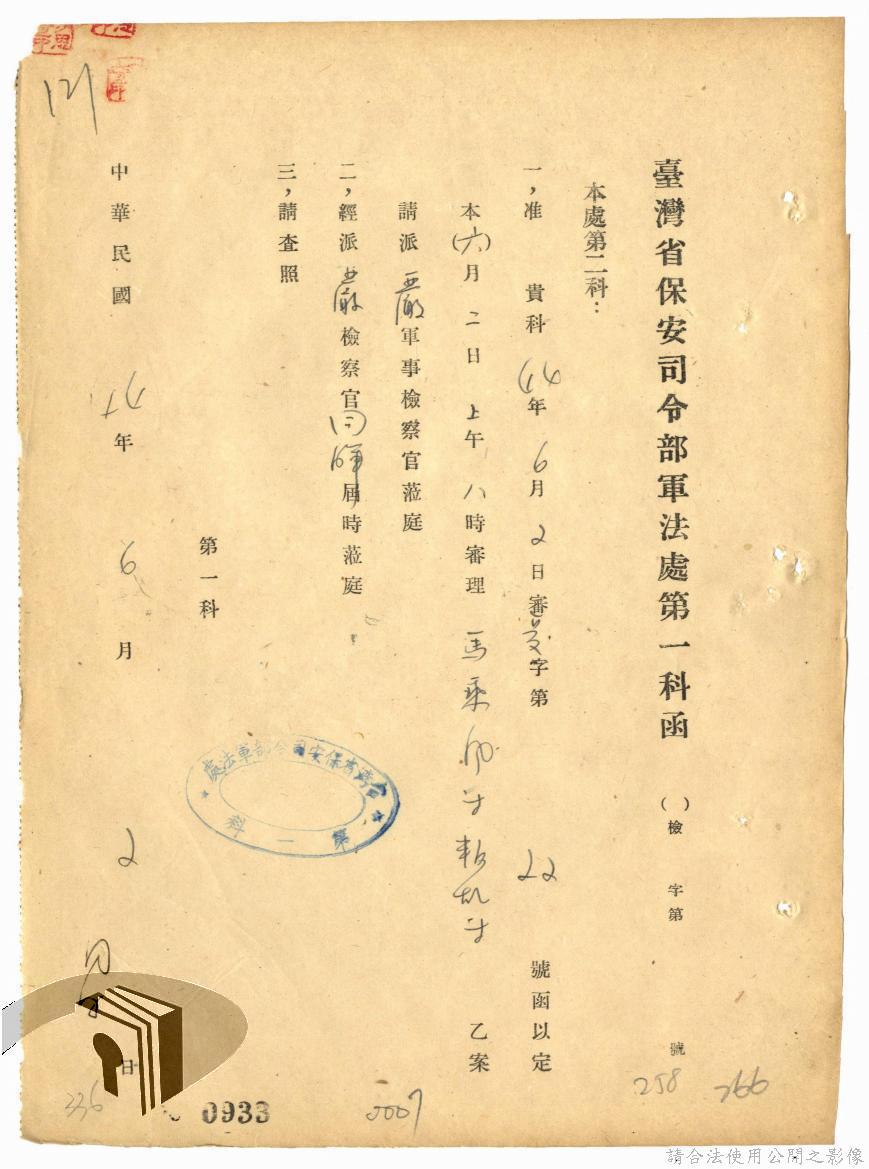 臺灣省保安司令部軍法處第一科函 ( )檢 字第 號
本處第二科：
一，准 貴科 44年 6月 2日審 字第 22 號函以定
本(六)月 二日 上午 八時審理 馬乘 叛亂 乙案
請派 嚴軍事檢察官蒞庭
二，經派 嚴檢察官 屆時蒞庭
三，請查照
第一科
中華民國 44年 6月 2 日
台灣省保安司令部軍法處
第一科
121
258
266
336
0933
0007
請合法使用公開之影像